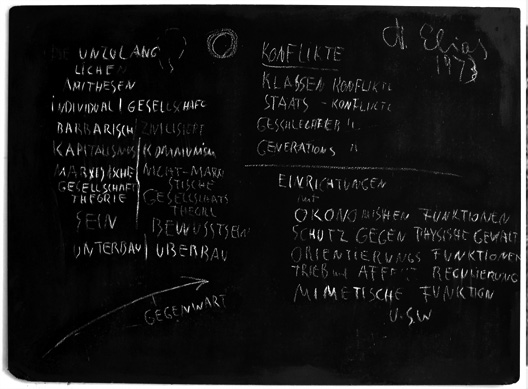 DIE UNZULÄNG
LICHEN
ANTITHESEN
INDIVIDUAL | GESELLSCHAFT
BARBARISCH | ZIVILISIERT
KAPITALISMUS | KOMMUNISM
MARXISTISCHE | NICHT-MARXI
GESELLSCHAFTS | STISCHE
THEORIE | GESELLSCHAFTS
THEORIE
SEIN | BEWUSSTSEIN
UNTERBAU | ÜBERBAU
GEGENWART
KONFLIKTE
KLASSEN KONFLIKTE
STAATS - KONFLIKTE
GESCHLECHTER "
GENERATIONS "
N. Elias
EINRICHTUNGEN
mit
ÖKONOMISHEN FUNKTIONEN
SCHUTZ GEGEN PHYSISCHE GEWALT
ORIENTIERUNGS FUNKTIONEN
TRIEB und AFFEKT REGULIERUNG
MIMETISCHE FUNKTION
U.S.W